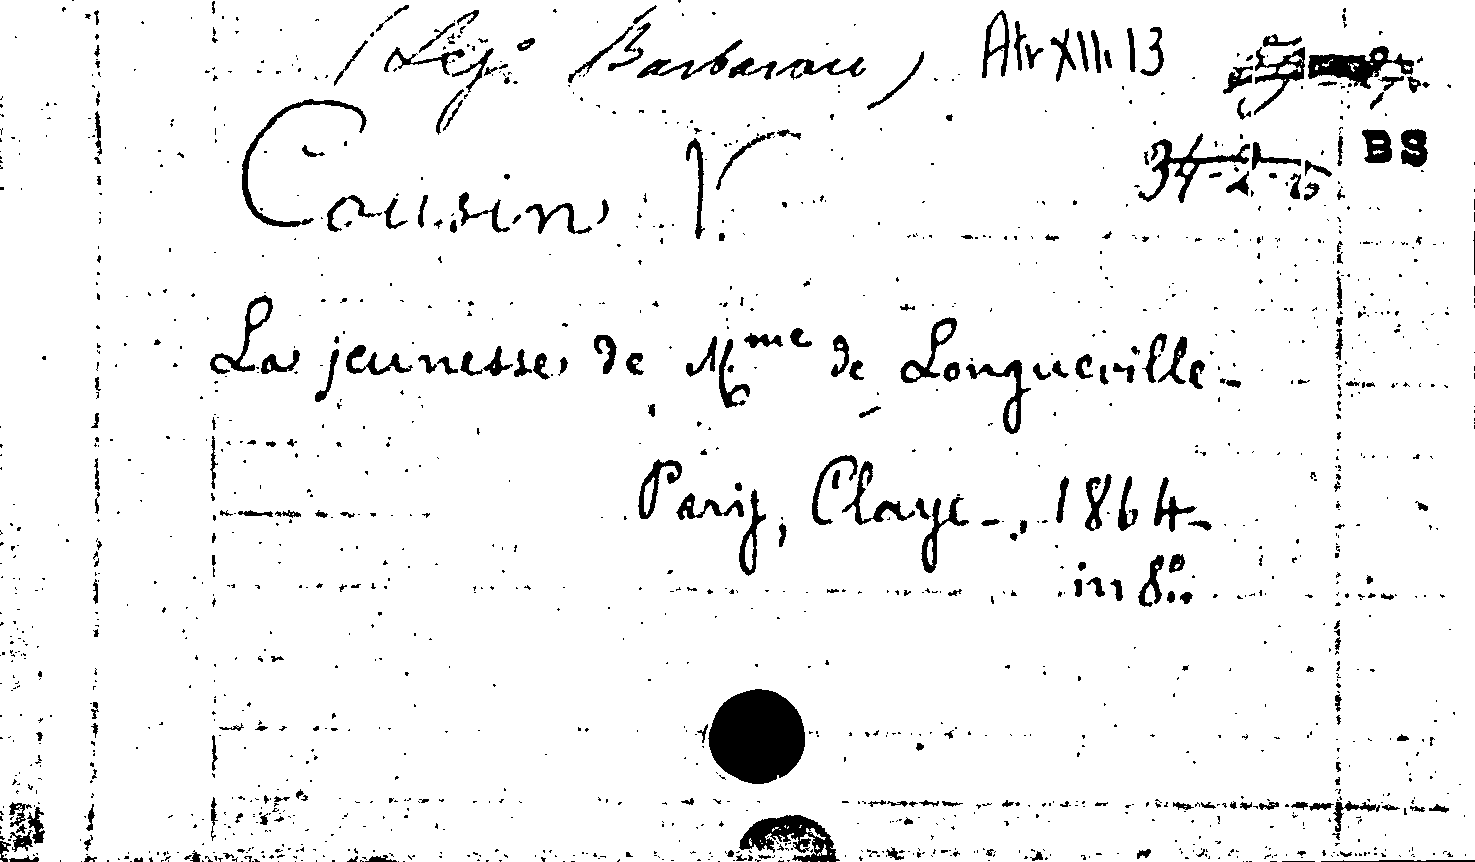 (Leg.º Barbaroux) Atr XIII. 13
34-2-6 BS
Cousin V.
La jeunesse de Mme de Longueville-
Paris, Claye-, 1864-
in 8º..